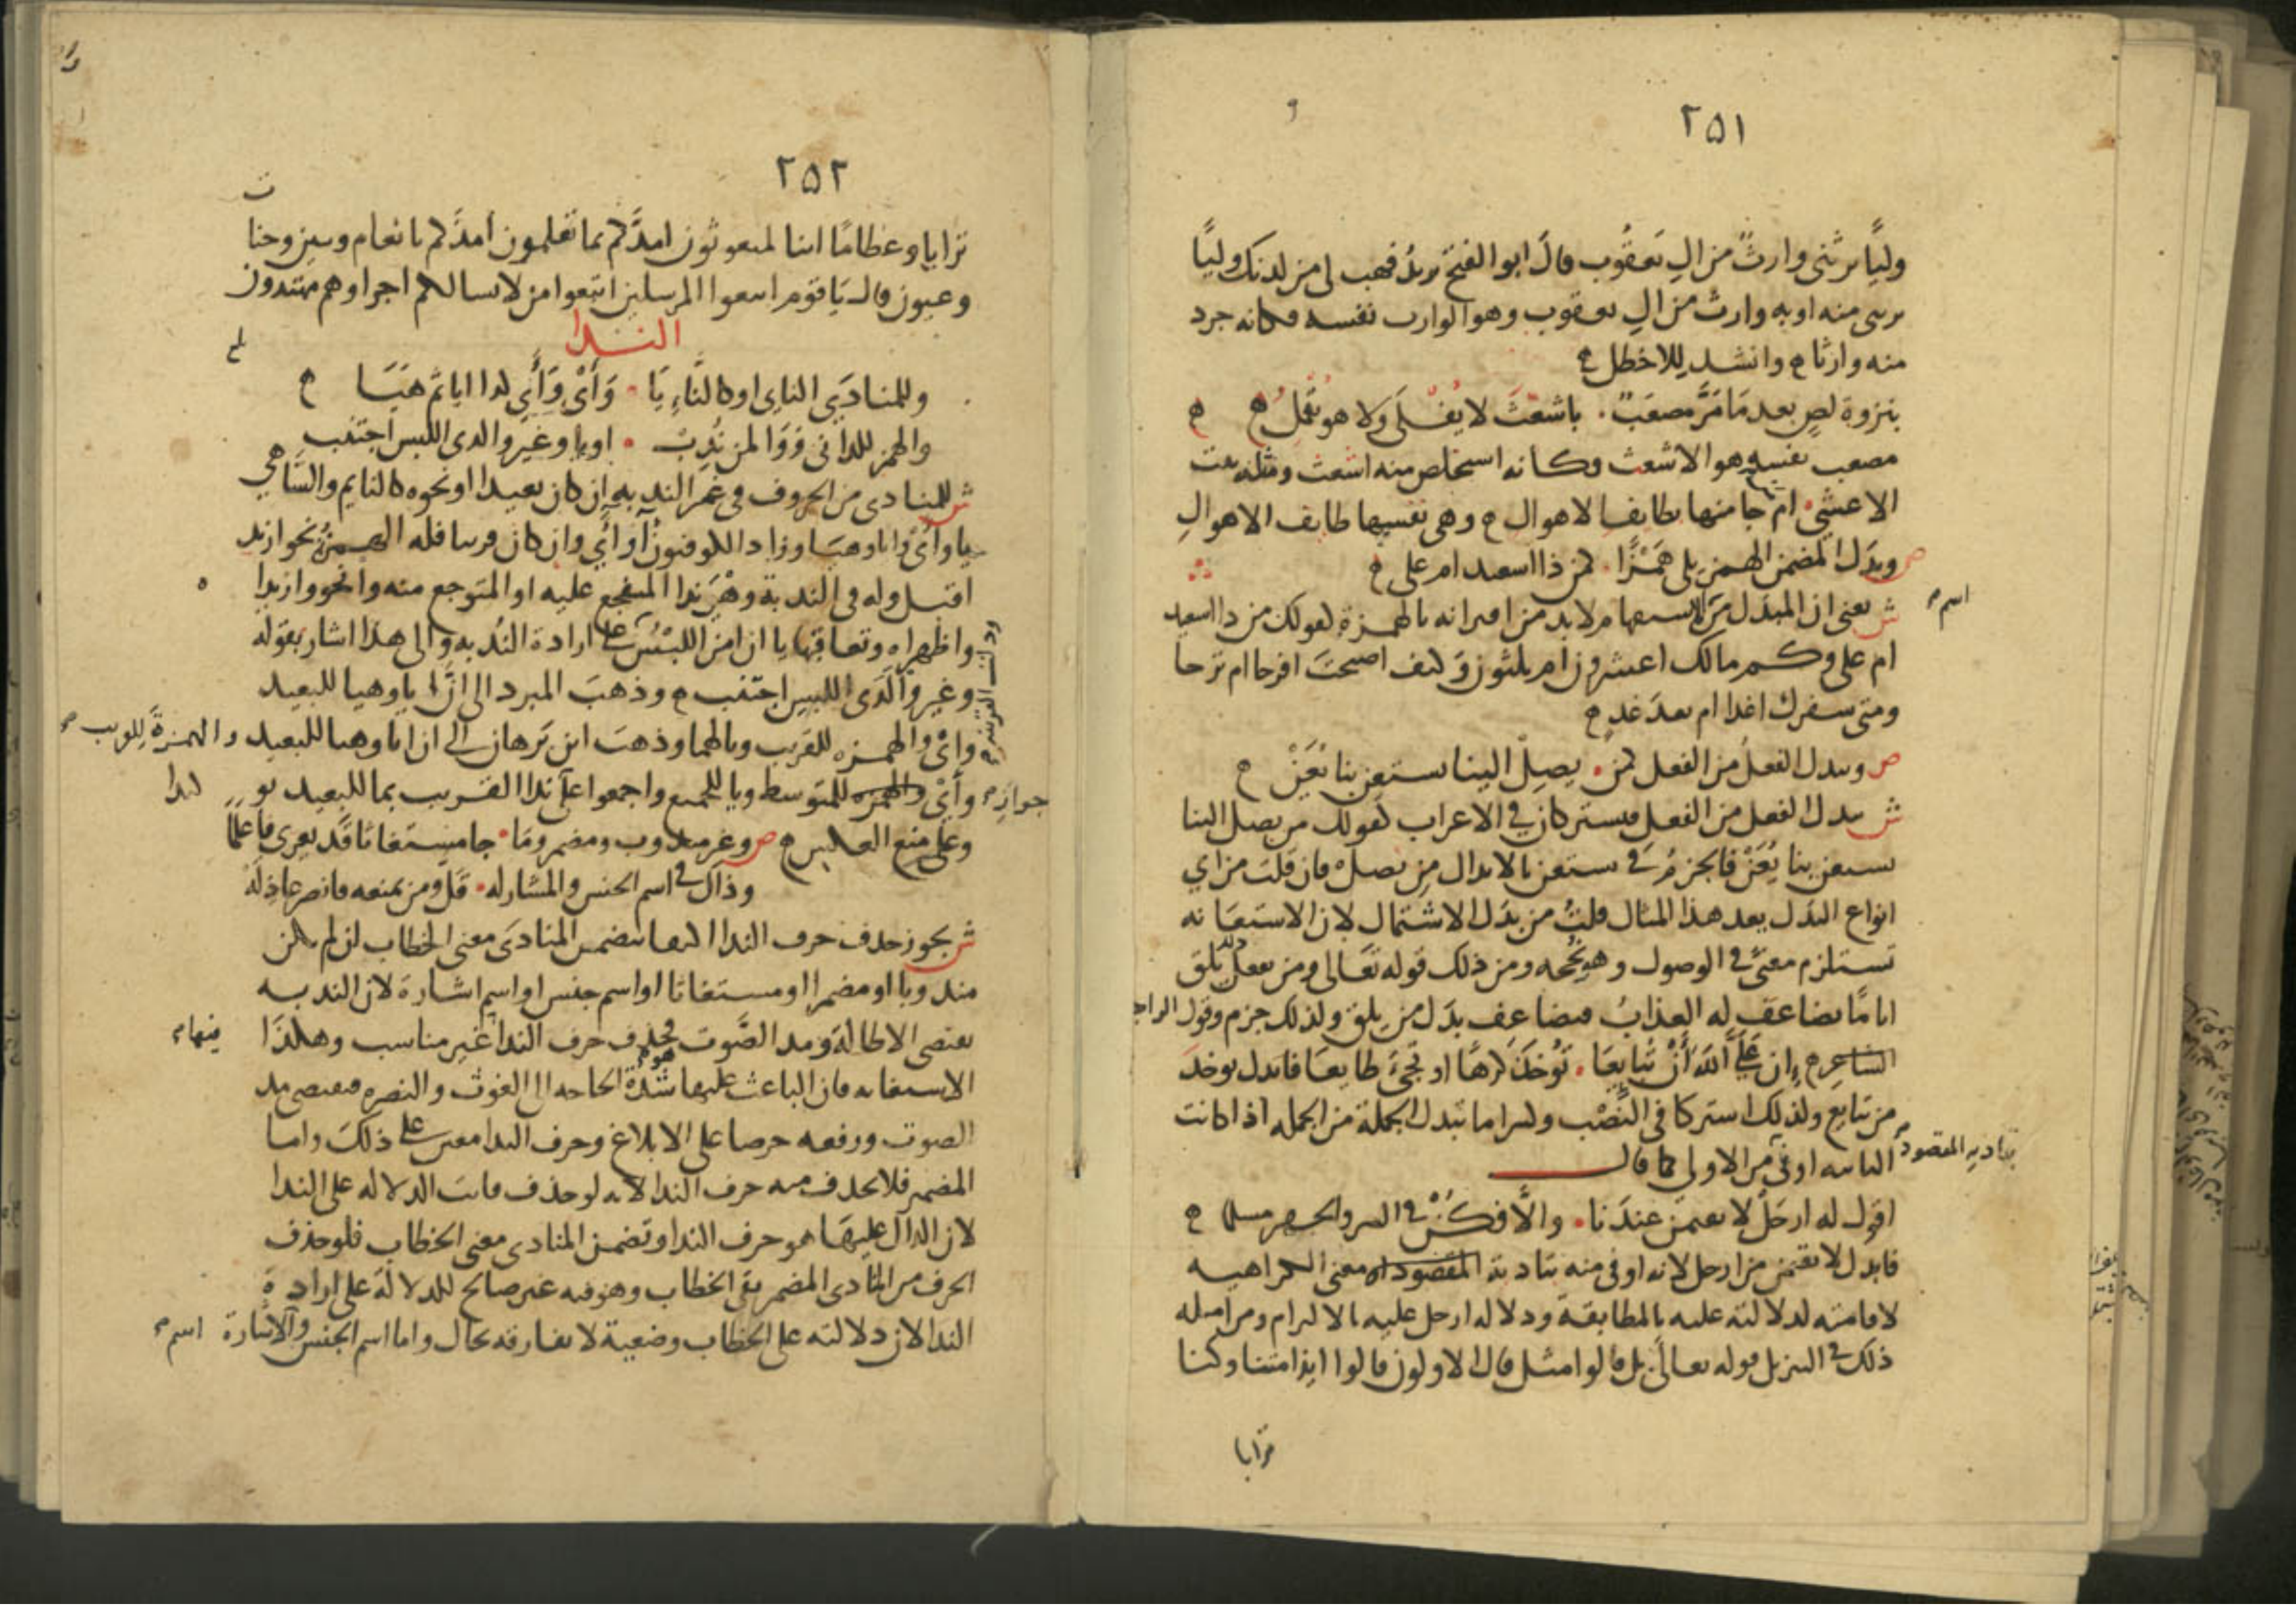 ٢٥١
وليًّا يرثنى وارثٌ من الِ يعقُوب قالَ ابو الفتح يريدُ فهب لى من لدنك وليًّا
يرثنى منه او به وارث من الِ يعقوب وهو الوارث نفسه فكانه جرد
منه وارثا ه وانشد للاخطل ه
بنزوة لصٍ بعد مَا مَرَّ مصعَبٌ . باشعَثَ لا يُفْلَى ولا هو يُقْمَلُ ه
مصعب نفسه هو الاشعث وكانه استخلص منه اشعث ومثله بيت
الاعشى . ام جا منها بطايف الاهوال ه وهى نفسها طايف الاهوالِ
ص وبَدَل المضمن الهمز يلى هَمْزًا . كمن ذا اسعيد ام على ه
ش يعنى ان المبدَل من اسم م استفهام لا بد من اقترانه بالهمزة كقولك من ذا اسعيد
ام على وكم مالك اعشرون ام ثلثون وكيف اصبحتَ افرحا ام ترحا
ومتى سفرك اغدا ام بعدَ غدٍ ه
ص ويبدل الفعلُ من الفعل كمن . يصِلْ الينا يستعن بنا يُعَنْ ه
ش يبدل الفعل من الفعل فيشتركان فى الاعراب كقولك من يصل الينا
يستعن بنا يُعَنْ فالجزمُ فى يستعن بالابدال من يصلْ فان قلتَ من اي
انواع البدَل يعد هذا المثال قلتُ من بدَل الاشتمال لان الاستعَانه
تستلزم معنًى فى الوصول وهو نُجْحه ومن ذلك قوله تعَالى ومن يفعل ذلك يلق
اثامًا يضاعف له العذابُ فيضاعف بدَل من يلق ولذلك جزم وقول الراجز
الشاعر ه إن عَلَيَّ اللهَ أنْ تُبَايِعَا . تُوخَذَ كَرهًا او تجِئَ طايعَا فابدل توخذَ
من تبايع ولذلك اشتركا فى النَّصْب وكثيرا ما تبدل الجملة من الجمله اذا كانت
الثانيه اوفى من الاولى كما قال بتادية المقصود م
اقول له ارحَلْ لا تقيمنَّ عندَنا . والَّا فكُنْ فى السر والجهر مسلما ه
فابدل لا تقيمن من ارحل لانه اوفى منه بتادية المقصود اه معنى الكراهيه
لاقامته لدلالته عليه بالمطابقة ودلاله ارحل عليه بالالتزام ومن امثله
ذلك فى التنزيل قوله تعالى بل قالوا مثل قال الاولون قالوا ايذا متنا وكنا
ترابا
٢٥٢
ترابا وعظامًا اينا لمبعوثون امدَّكم بما تعلمون امدَّكم بانعام وبنين وجنات
وعيون قال يَا قوم اتبعوا المرسلين اتبعوا من لا يسالكم اجرا وهم مهتدون
الندا
وللمنادَى النايِ او كالنَّاءِ يَا . وَأَيْ وَأَيَ كذا ايا ثم هَيَا ه
والهمز للدانى وَوَا لمن نُدِبْ . او يا وغير وا لدى اللبس اجتنب
ش للمنادى من الحروف فى غير الندبه ان كان بعيدا او نحوه كالنايم والسَّاهي
يا وايْ وايا وهيَا وزاد الكوفيون آ وآي وان كان قريبا فله الهمزة نحو ازيد
اقبل وله فى الندبة وهْيَ ندا المتفجع عليه او المتوجع منه وا نحو وا زيدا
وا ظهراه وتعاقبها يا ان امن اللبسُ على ارادة الندبه والى هذا اشار بقوله
وغير وا لَدَى اللبس اجتنب ه وذهبَ المبرد الى انَّ ايا وهيا للبعيد
وايْ والهمزه للقريب ويا لهما وذهبَ ابن بَرهان الى ان ايا وهيا للبعيد والهمزةَ للقريب م
وأيْ والهمزه للمتوسط ويا للجميع واجمعوا على جواز م ندا القريب بما للبعيد
وعلى منع العكس ه ص وغير مندوب ومضمر ومَا . جا مستغاثا قَد يعرى فاعلمَا
وذاك فى اسم الجنس والمشار له . قَلَّ ومن يمنعه فانصر عاذله
ش يجوز حذف حرف الندا اكتفا بتضمن المنادَى معنى الخطاب ان لم يكن
مندوبا او مضمرا او مستغاثا او اسم جنس او اسم اشارة لان الندبه
تقتضى الاطالة ومد الصَّوت فحذف حرف الندا فيها م غير مناسب وهكذَا
الاستغاثه فان الباعث عليها هو م شدّة الحاجه الى الغوث والنصره فتقتضى مد
الصوت ورفعه حرصا على الابلاغ وحرف الندا معين على ذلكَ واما
المضمر فلا يحذف منه حرف الندا لانه لو حذف فاتت الدلاله على الندا
لان الدال عليهَا هو حرف الندا وتضمن المنادى معنى الخطاب فلو حذف
الحرف من المنادى المضمر بقى الخطاب وهو فيه غير صالح للدلالة على ارادة
الندا لان دلالته على الخطاب وضعية لا تفارقه بحال واما اسم الجنس واسم م الاشارة